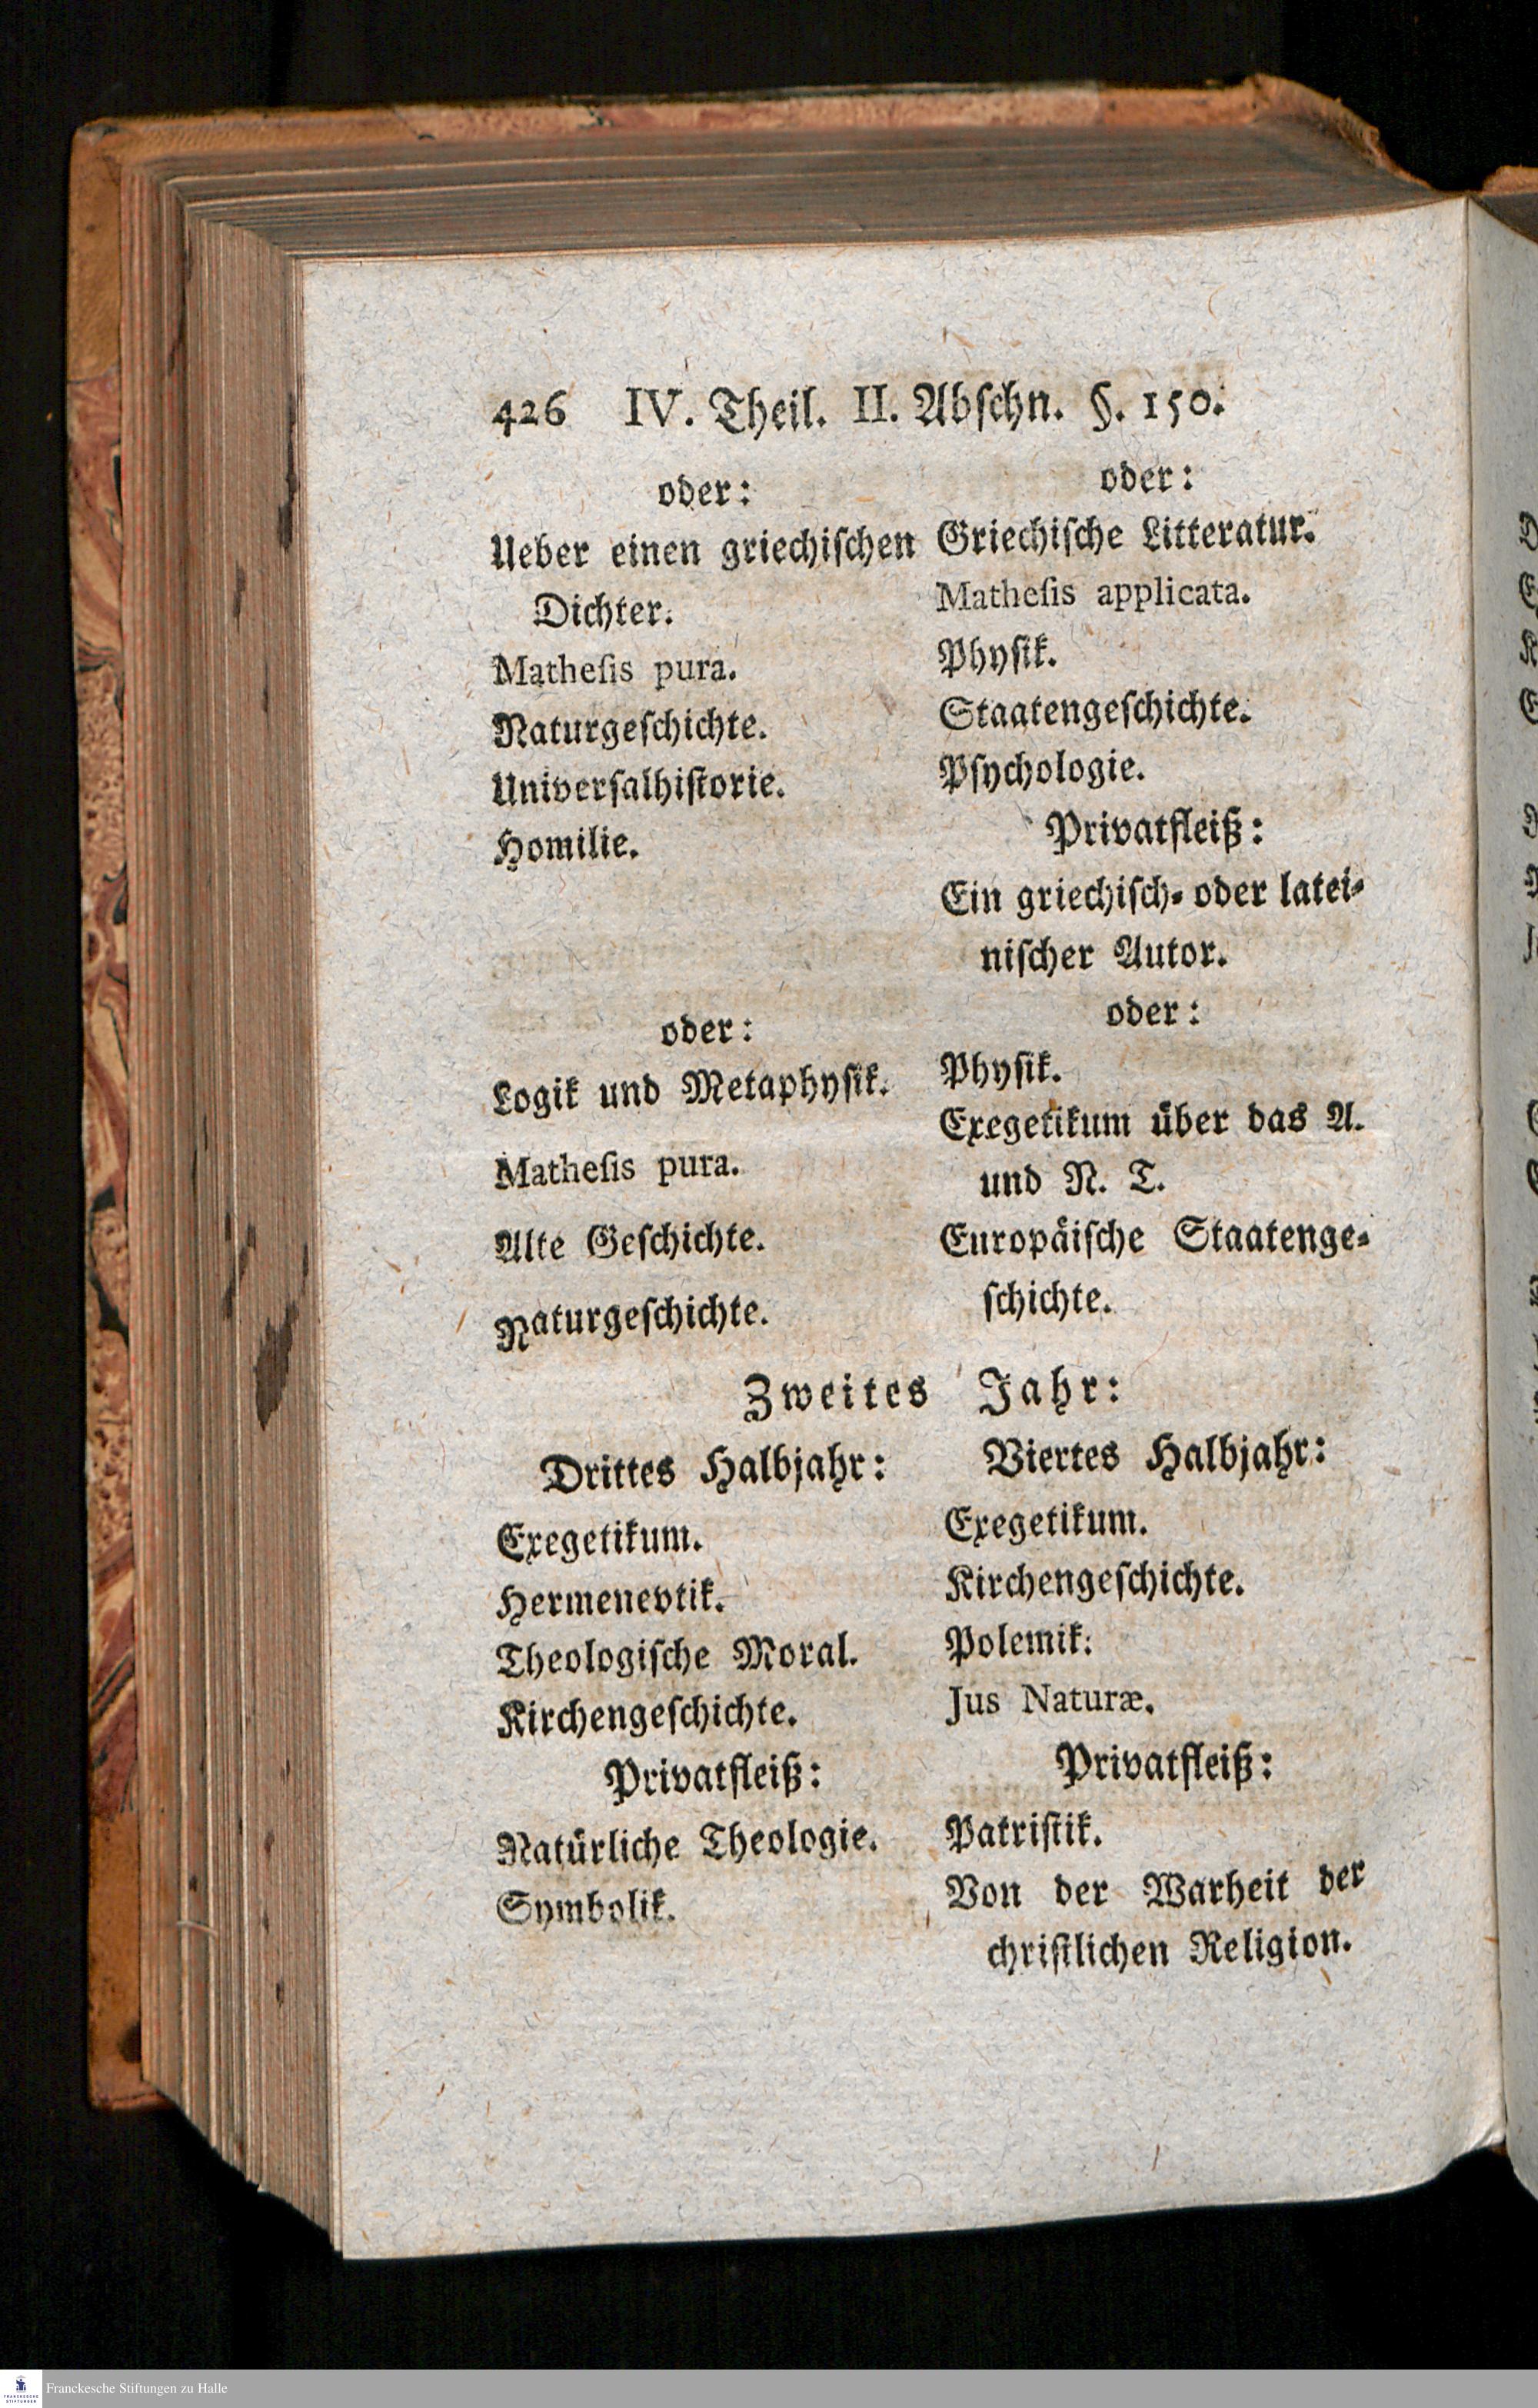 426 IV. Theil. II. Abschn. §. 150.
oder:
Ueber einen griechischen
Dichter.
Mathesis pura.
Naturgeschichte.
Universalhistorie.
Homilie.
oder:
Logik und Metaphysik.
Mathesis pura.
Alte Geschichte.
Naturgeschichte.
oder:
Griechische Litteratur.
Mathesis applicata.
Physik.
Staatengeschichte.
Psychologie.
Privatfleiß:
Ein griechisch- oder latei-
nischer Autor.
oder:
Physik.
Exegetikum über das A.
und N. T.
Europäische Staatenge-
schichte.
Zweites Jahr:
Drittes Halbjahr:
Exegetikum.
Hermenevtik.
Theologische Moral.
Kirchengeschichte.
Privatfleiß:
Natürliche Theologie.
Symbolik.
Viertes Halbjahr:
Exegetikum.
Kirchengeschichte.
Polemik.
Jus Naturæ.
Privatfleiß:
Patristik.
Von der Warheit der
christlichen Religion.
Franckesche Stiftungen zu Halle
FRANCKESCHE
STIFTUNGEN